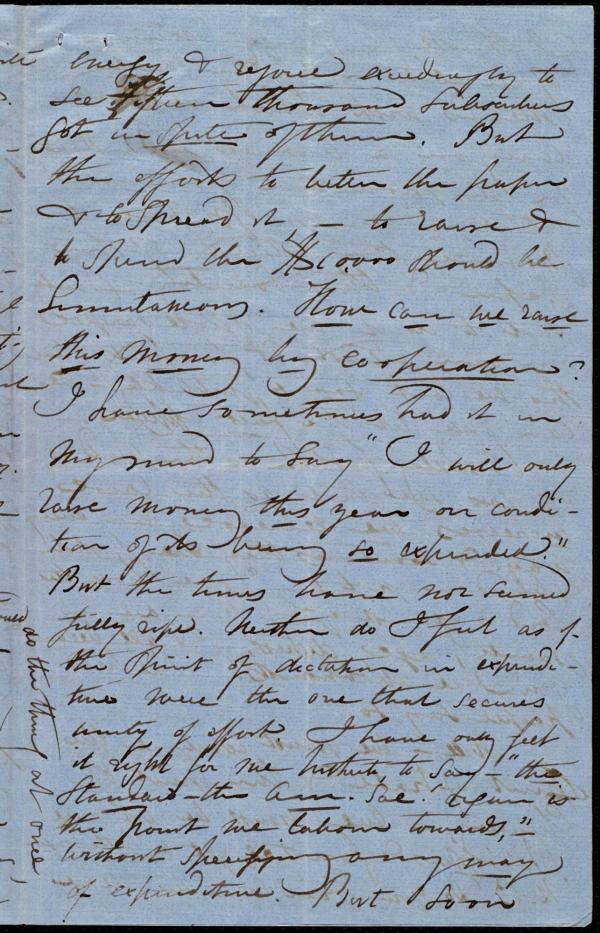 energy & rejoice exceedingly to
see fifteen thousand subscribers
got in spite of them. But
the efforts to better the paper
& to spread it, — to raise &
to spend the should be
simultaneous. How can we raise
this money by cooperation?
I have sometimes had it in
my mind to say "I will only
raise money this year on condi-
tion of its being so expended."
But the times have not seemed
fully ripe. Neither do I feel as if
the spirit of dictation in expendi-
ture were the one that secures
unity of effort. I have only felt
it right for me hitherto, to say — "the
Standard — the Am. Soc. organ is
the point we labour towards," —
without specifying any way
of expenditure. But soon
do the thing at once